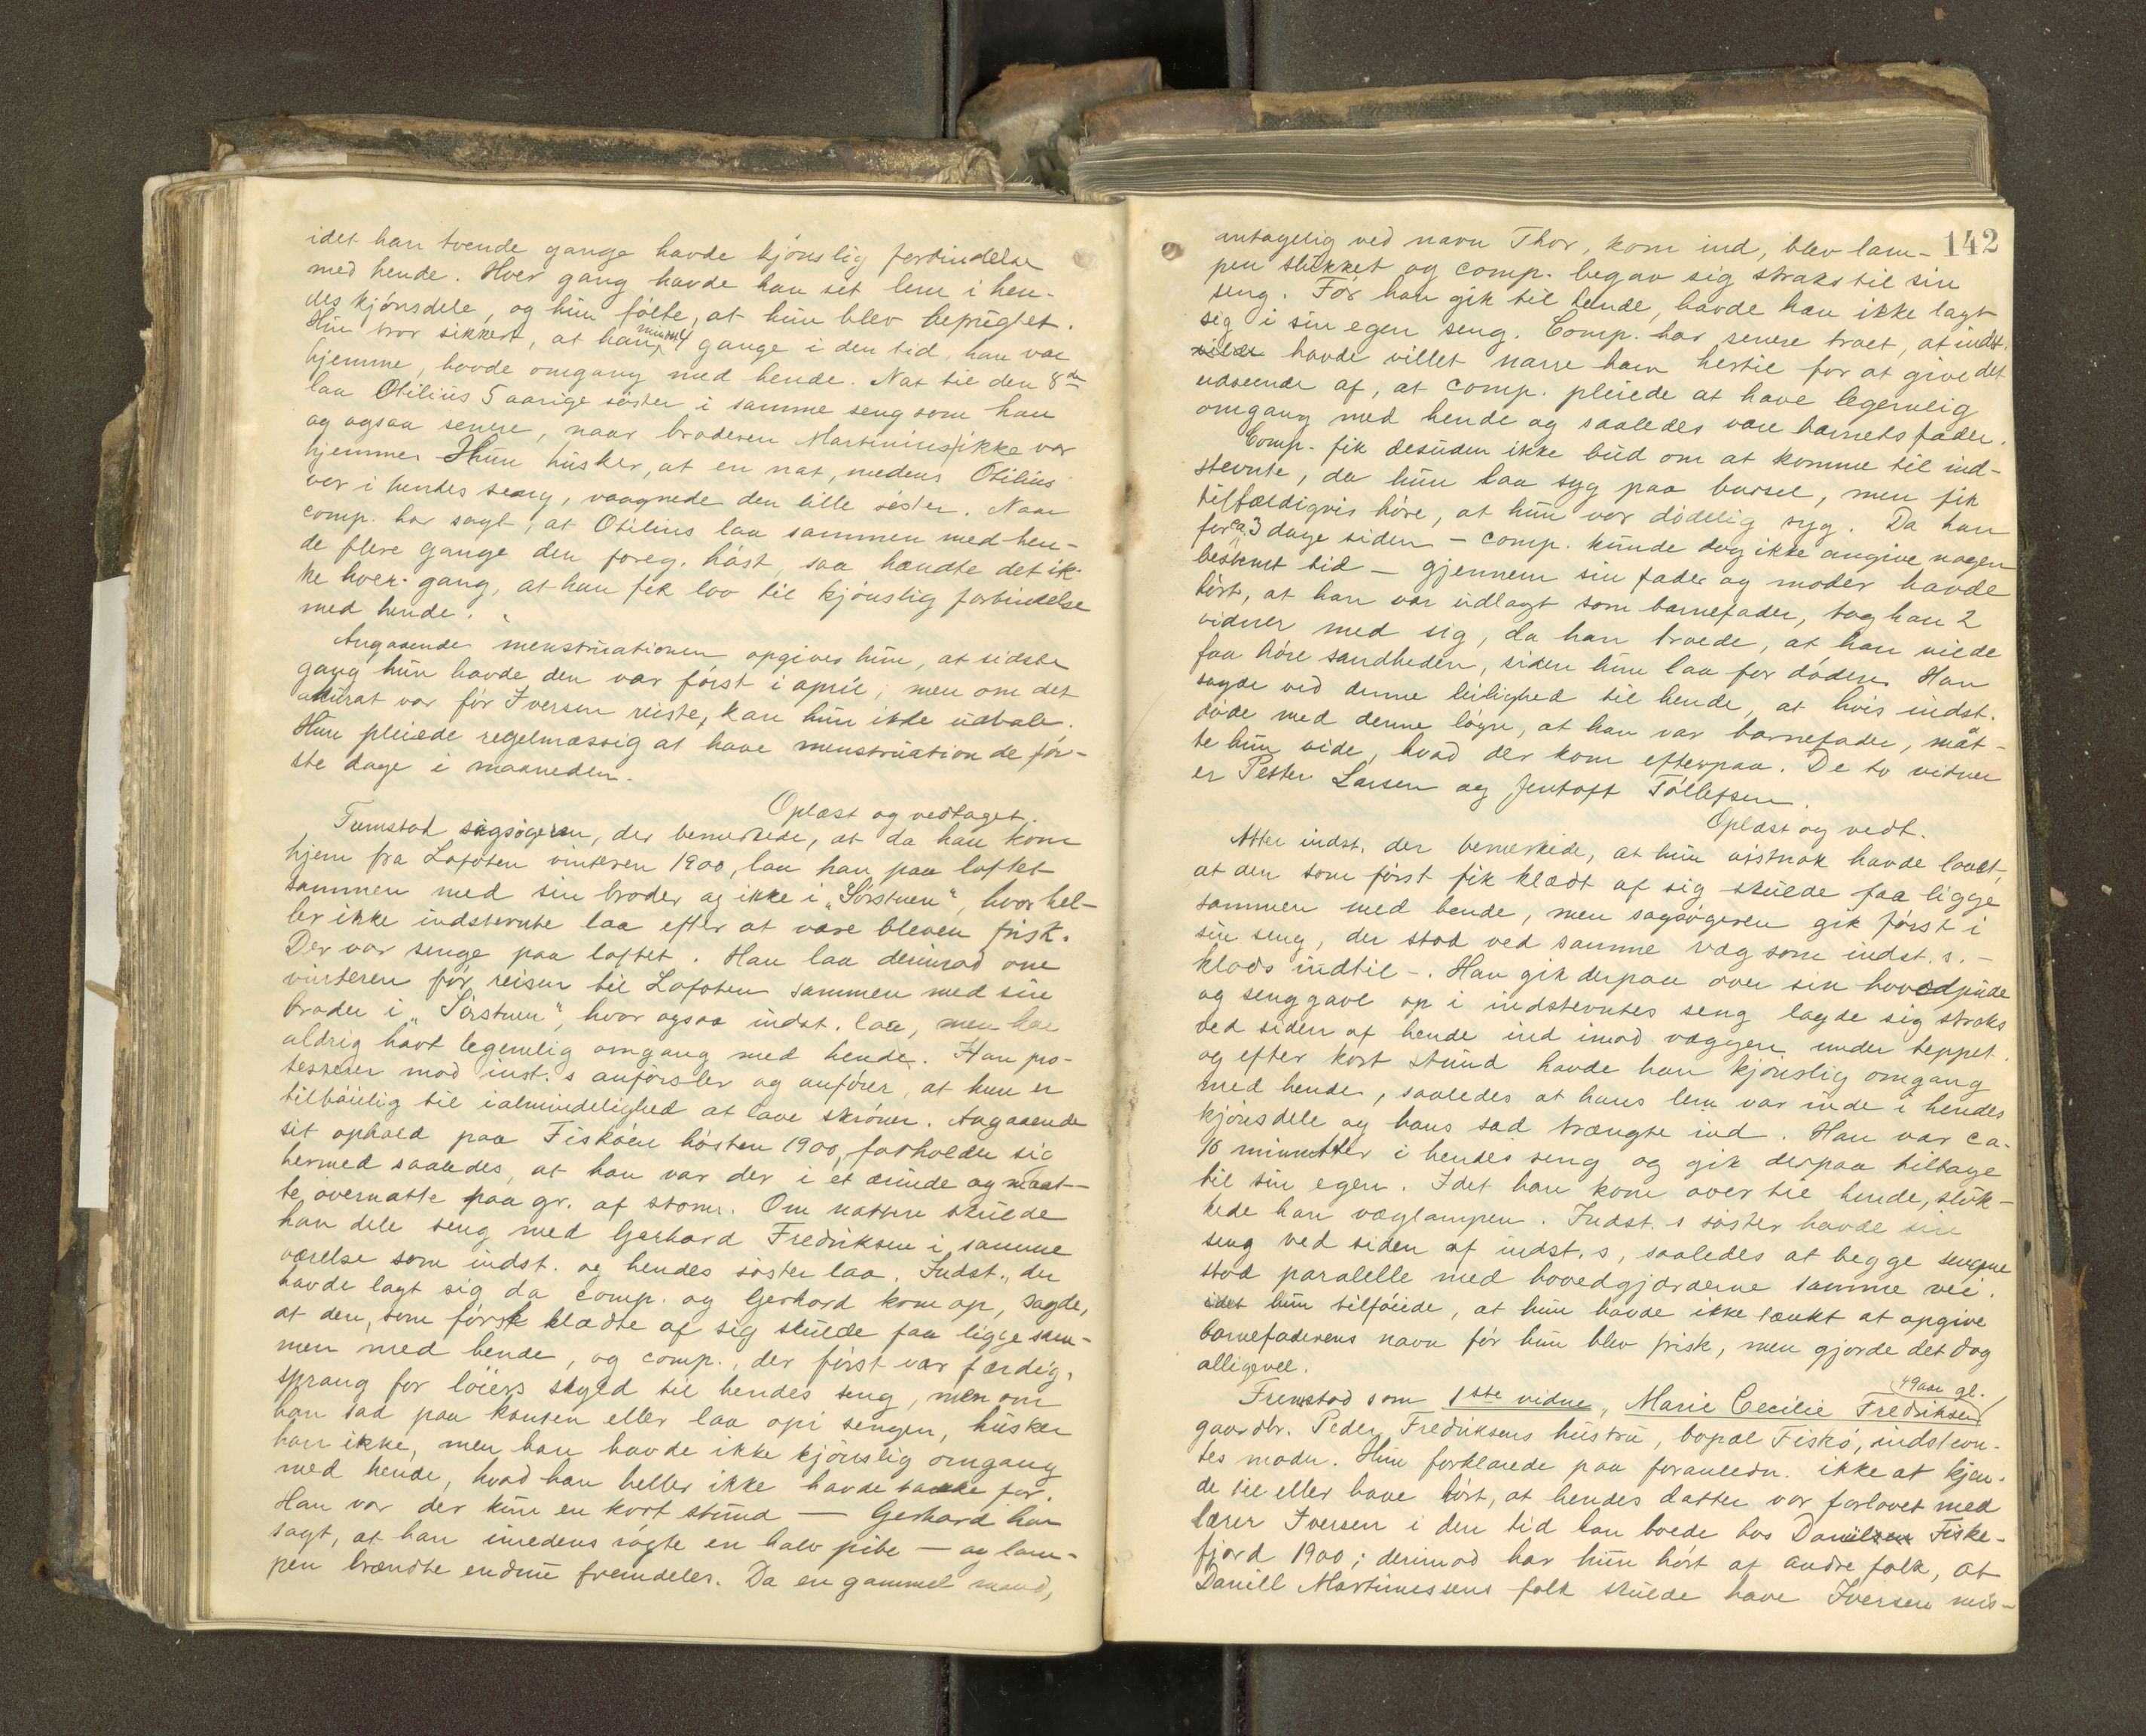 idet han tvende gange havde kjönslig forbindelse
med hende. Hver gang havde han sit lem i hen-
des kjönsdele, og hun fölte, at hun blev befrugtet.
Hun tror sikkert, at han mindst 4 gange i den tid, han var
hjemme, havde omgang med hende. Nat til den 8de
laa Otilius 5 aarige söster i samme seng som han
og ogsaa senere, naar broderen Martinius ikke var
hjemme. Hun husker, at en nat, medens Otilius
var i hendes seng, vaagnede den lille söster. Naar
comp. har sagt, at Otilius laa sammen med hen-
de flere gange den foreg. höst, saa hændte det ik-
ke hver gang, at han fik lov til kjönslig forbindelse
med hende.
Angaaende menstruationen opgives hun, at sidste
gang hun havde den var först i april; men om det
akurat var för Iversen reiste, kan hun ikke udtale.
Hun pleiede regelmæssig at have menstruation de för-
ste dage i maaneden.
Oplæst og vedtaget.
Fremstod sagsögeren, der bemerkede, at da han kom
hjem fra Lofoten vinteren 1900, laa han paa loftet
sammen med sin broder og ikke i "Sörstuen", hvor hel-
ler ikke indstevnte laa efter at være bleven frisk.
Der var senge paa loftet. Han laa derimod om
vinteren för reisen til Lofoten sammen med sin
broder i "Sörstuen", hvor ogsaa indst. laa, men har
aldrig havt legemlig omgang med hende. Han pro-
testerer mod inst.s anförsler og anförer, at hun er
tilböielig til i almindelighed at lave skröner. Angaaende
sit ophold paa Fisköen hösten 1900, forholder sig
hermed saaledes, at han var der i et ærinde og maat-
te overnatte paa gr. af storm. Om natten skulde
han dele seng med Gerhard Fredriksen i samme
værelse som indst. og hendes söster laa. Indst., der
havde lagt sig da comp. og Gerhard kom op, sagde,
at den, som först klædte af sig skulde faa ligge sam-
men med hende, og comp., der först var færdig,
sprang for löiers skyld til hendes seng, men om
han sad paa kanten eller laa opi sengen, husker
han ikke, men han havde ikke kjönslig omgang
med hende, hvad han heller ikke havde tanke for.
Han var der kun en kort stund — Gerhard har
sagt, at han imedens rögte en halv pibe — og lam-
pen brændte endnu fremdeles. Da en gammel mand,
142
antagelig ved navn Thor, kom ind, blev lam-
pen slukket og comp. begav sig straks til sin
seng. För han gik til hende, havde han ikke lagt
sig i sin egen seng. Comp. har senere troet, at indst.
havde villet narre ham hertil for at give det
udseende af, at comp. pleiede at have legemlig
omgang med hende og saaledes være barnets fader.
Comp. fik desuden ikke bud om at komme til ind-
stevnte, da hun laa syg paa barsel, men fik
tilfældigvis höre, at hun var dödelig syg. Da han
for ca. 3 dage siden — comp. kunde dog ikke angive nogen
bestemt tid — gjennem sin fader og moder havde
hört, at han var udlagt som barnefader, tog han 2
vidner med sig, da han troede, at han vilde
faa höre sandheden, siden hun laa for döden. Han
sagde ved denne leilighed til hende, at hvis indst.
döde med denne lögn, at han var barnefader, måt-
te hun vide, hvad der kom efterpaa. De to vidner
er Petter Larsen og Jentoft Töllefsen.
Oplæst og vedt.
Atter indst. der bemerkede, at hun vistnok havde lovet,
at den som först fik klædt af sig skulde faa ligge
sammen med hende, men sagsögeren gik först i
sin seng, der stod ved samme væg som indst.s. –
klods indtil –. Han gik derpaa over sin hovedpude
og senggavl op i indstevntes seng lagde sig straks
ved siden af hende ind imod væggen under teppet.
og efter kort stund havde han kjönslig omgang
med hende, saaledes at hans lem var inde i hendes
kjönsdele og hans sæd trængte ind. Han var ca.
10 minutter i hendes seng og gik derpaa tilbage
til sin egen. Idet han kom over til hende, sluk-
kede han væglampen. Indst.s söster havde sin
seng ved siden af indst.s, saaledes at begge sengene
stod paralelle med hovedgjærderne samme vei.
idet hun tilföiede, at hun havde ikke tænkt at opgive
barnefaderens navn för hun blev frisk, men gjorde det dog
alligevel.
Fremstod som 1ste vidne, Marie Cecilie Fredriksen 49 aar gl.
gaardbr. Peder Fredriksens hustru, bopæl Fiskö, indstevn-
tes moder. Hun forklarede paa foranledn. ikke at kjen-
de til eller have hört, at hendes datter var forlovet med
lærer Iversen i den tid han boede hos Danielsen Fiske-
fjord 1900; derimod har hun hört af andre folk, at
Daniel Martinussens folk skulde have Iversen mis-